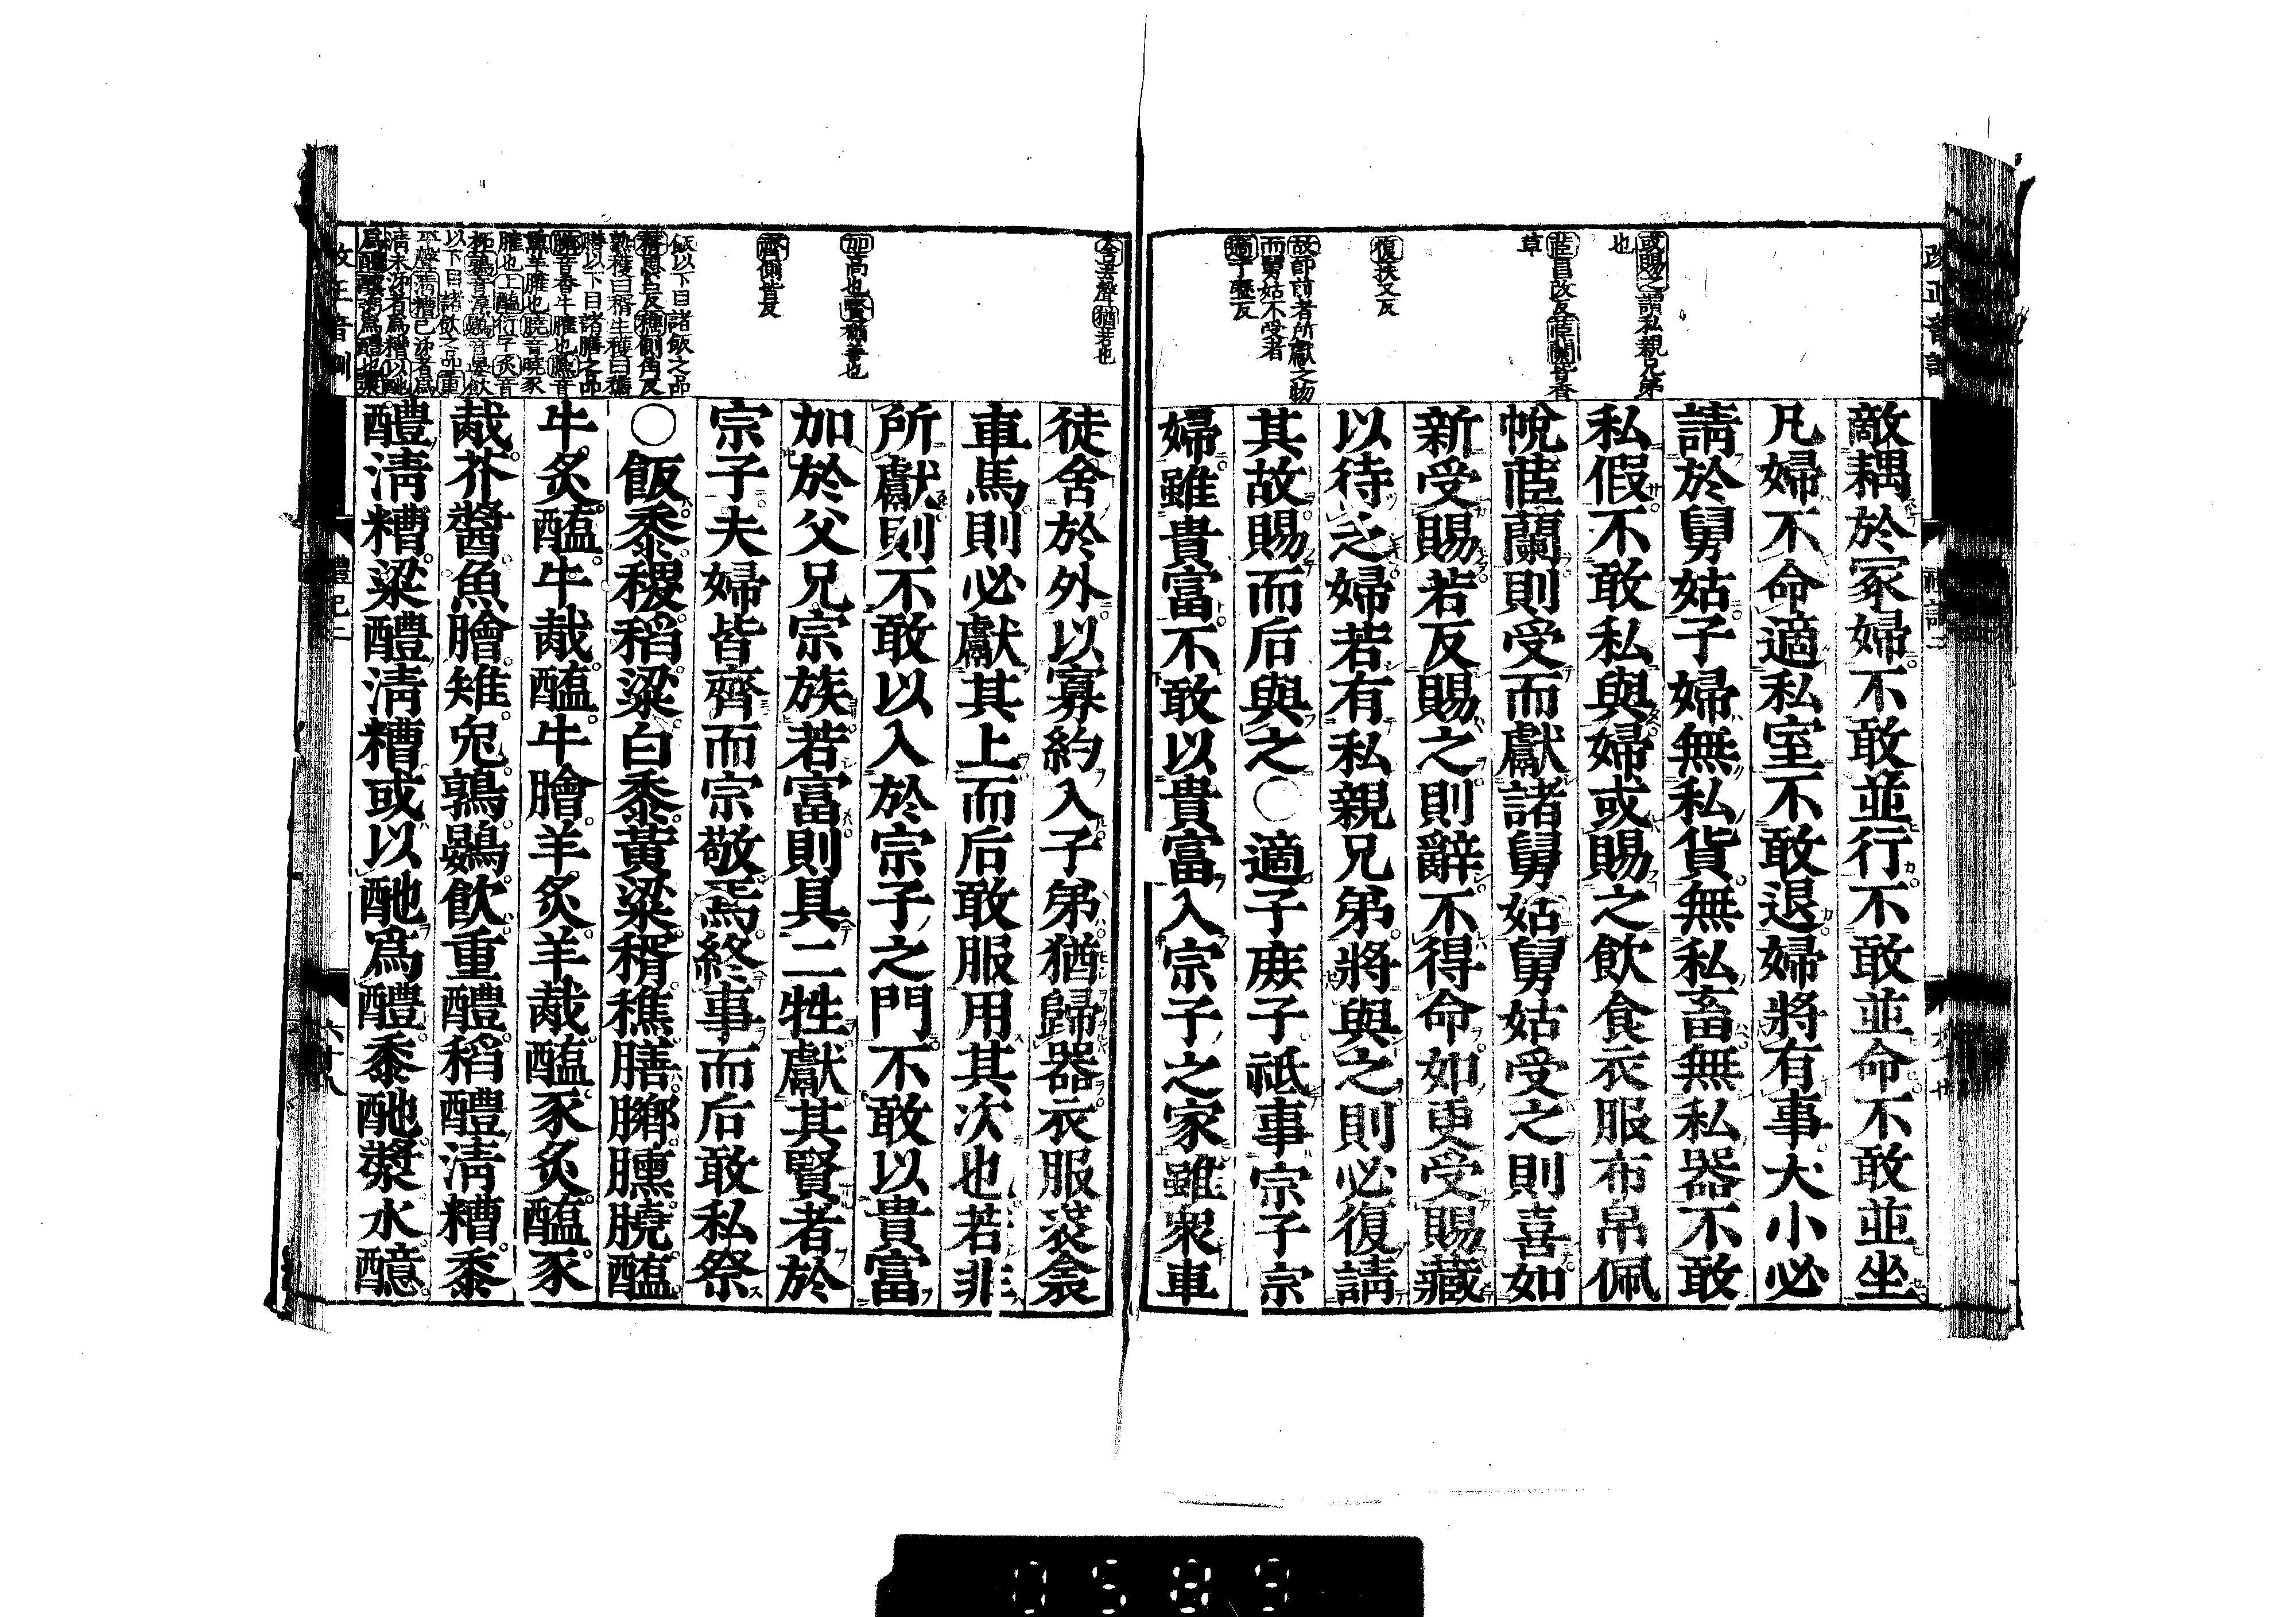 敵耦於冢婦不敢並行不敢並命不敢並坐
凡婦不命適私室不敢退婦將有事大小必
請於舅姑子婦無私貨無私畜無私器不敢
私假不敢私與婦或賜之飲食衣服布帛佩
帨茝蘭則受而獻諸舅姑舅姑受之則喜如
新受賜若反賜之則辭不得命如更受賜藏
以待之婦若有私親兄弟將與之則必復請
其故賜而后與之○適子庻子祗事宗子宗
婦雖貴富不敢以貴富入宗子之家雖衆車
或賜之謂私親兄弟
也
茝昌改反茝蘭皆香
草
復扶又反
故即前者所獻之物
而舅姑不受者
適丁歷反
徒舍於外以寡約入子弟猶歸器衣服裘衾
車馬則必獻其上而后敢服用其次也若非
所獻則不敢以入於宗子之門不敢以貴富
加於父兄宗族若富則具二牲獻其賢者於
宗子夫婦皆齊而宗敬焉終事而后敢私祭
○飯黍稷稻粱白黍黃粱稰穛膳膷臐膮醢
牛炙醢牛胾醢牛膾羊炙羊胾醢豕炙醢豕
胾芥醬魚膾雉兔鶉鷃飲重醴稻醴淸糟黍
醴淸糟粱醴淸糟或以酏爲醴黍酏漿水醷
舍去聲猶若也
加高也賢猶善也
齊側皆反
飯以下目諸飯之品
稰思呂反穛側角反
熟穫曰稰生穫曰穛
膳以下目諸膳之品
膷音香牛臛也臐音
熏羊臛也膮音曉豕
臛也上醢衍字炙音
以下目諸飲之品重
禮記二
六十八
0589